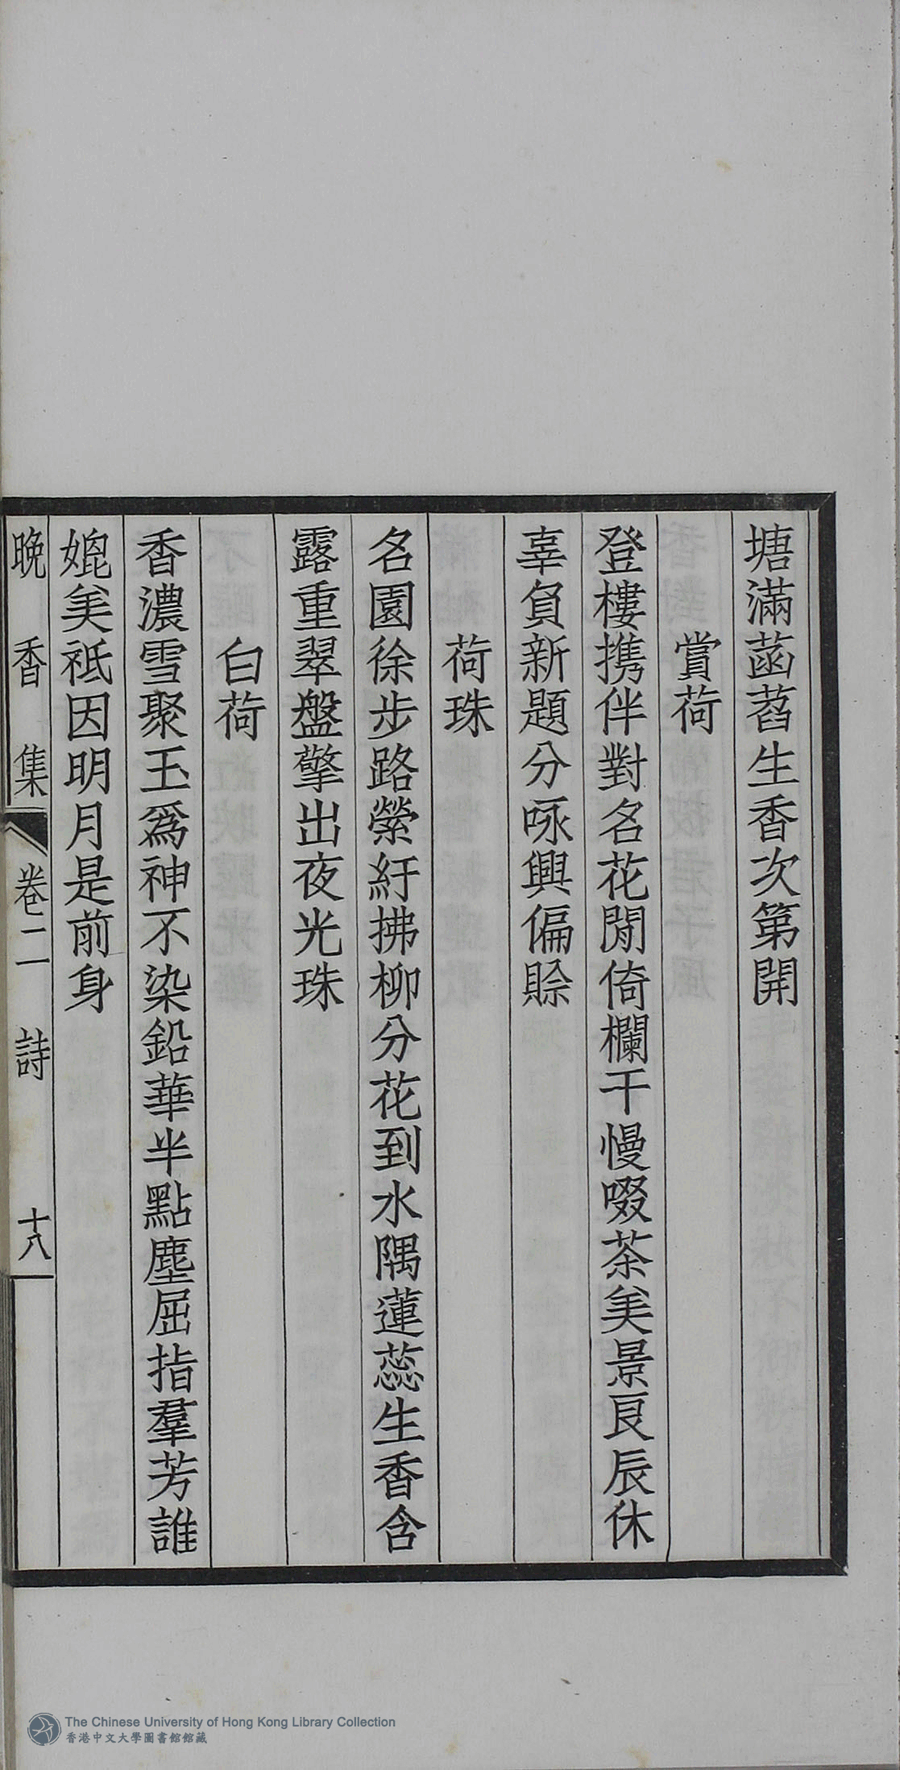 塘滿菡萏生香次第開
賞荷
登樓携伴對名花閒倚欄干慢啜茶美景良辰休
辜負新題分咏興偏賒
荷珠
名園徐步路縈紆拂柳分花到水隅蓮蕊生香含
露重翠盤擎出夜光珠
白荷
香濃雪聚玉爲神不染鉛華半點塵屈指羣芳誰
媲美祗因明月是前身
晚香集 卷二 詩 十八
The Chinese University of Hong Kong Library Collection
香港中文大學圖書館館藏